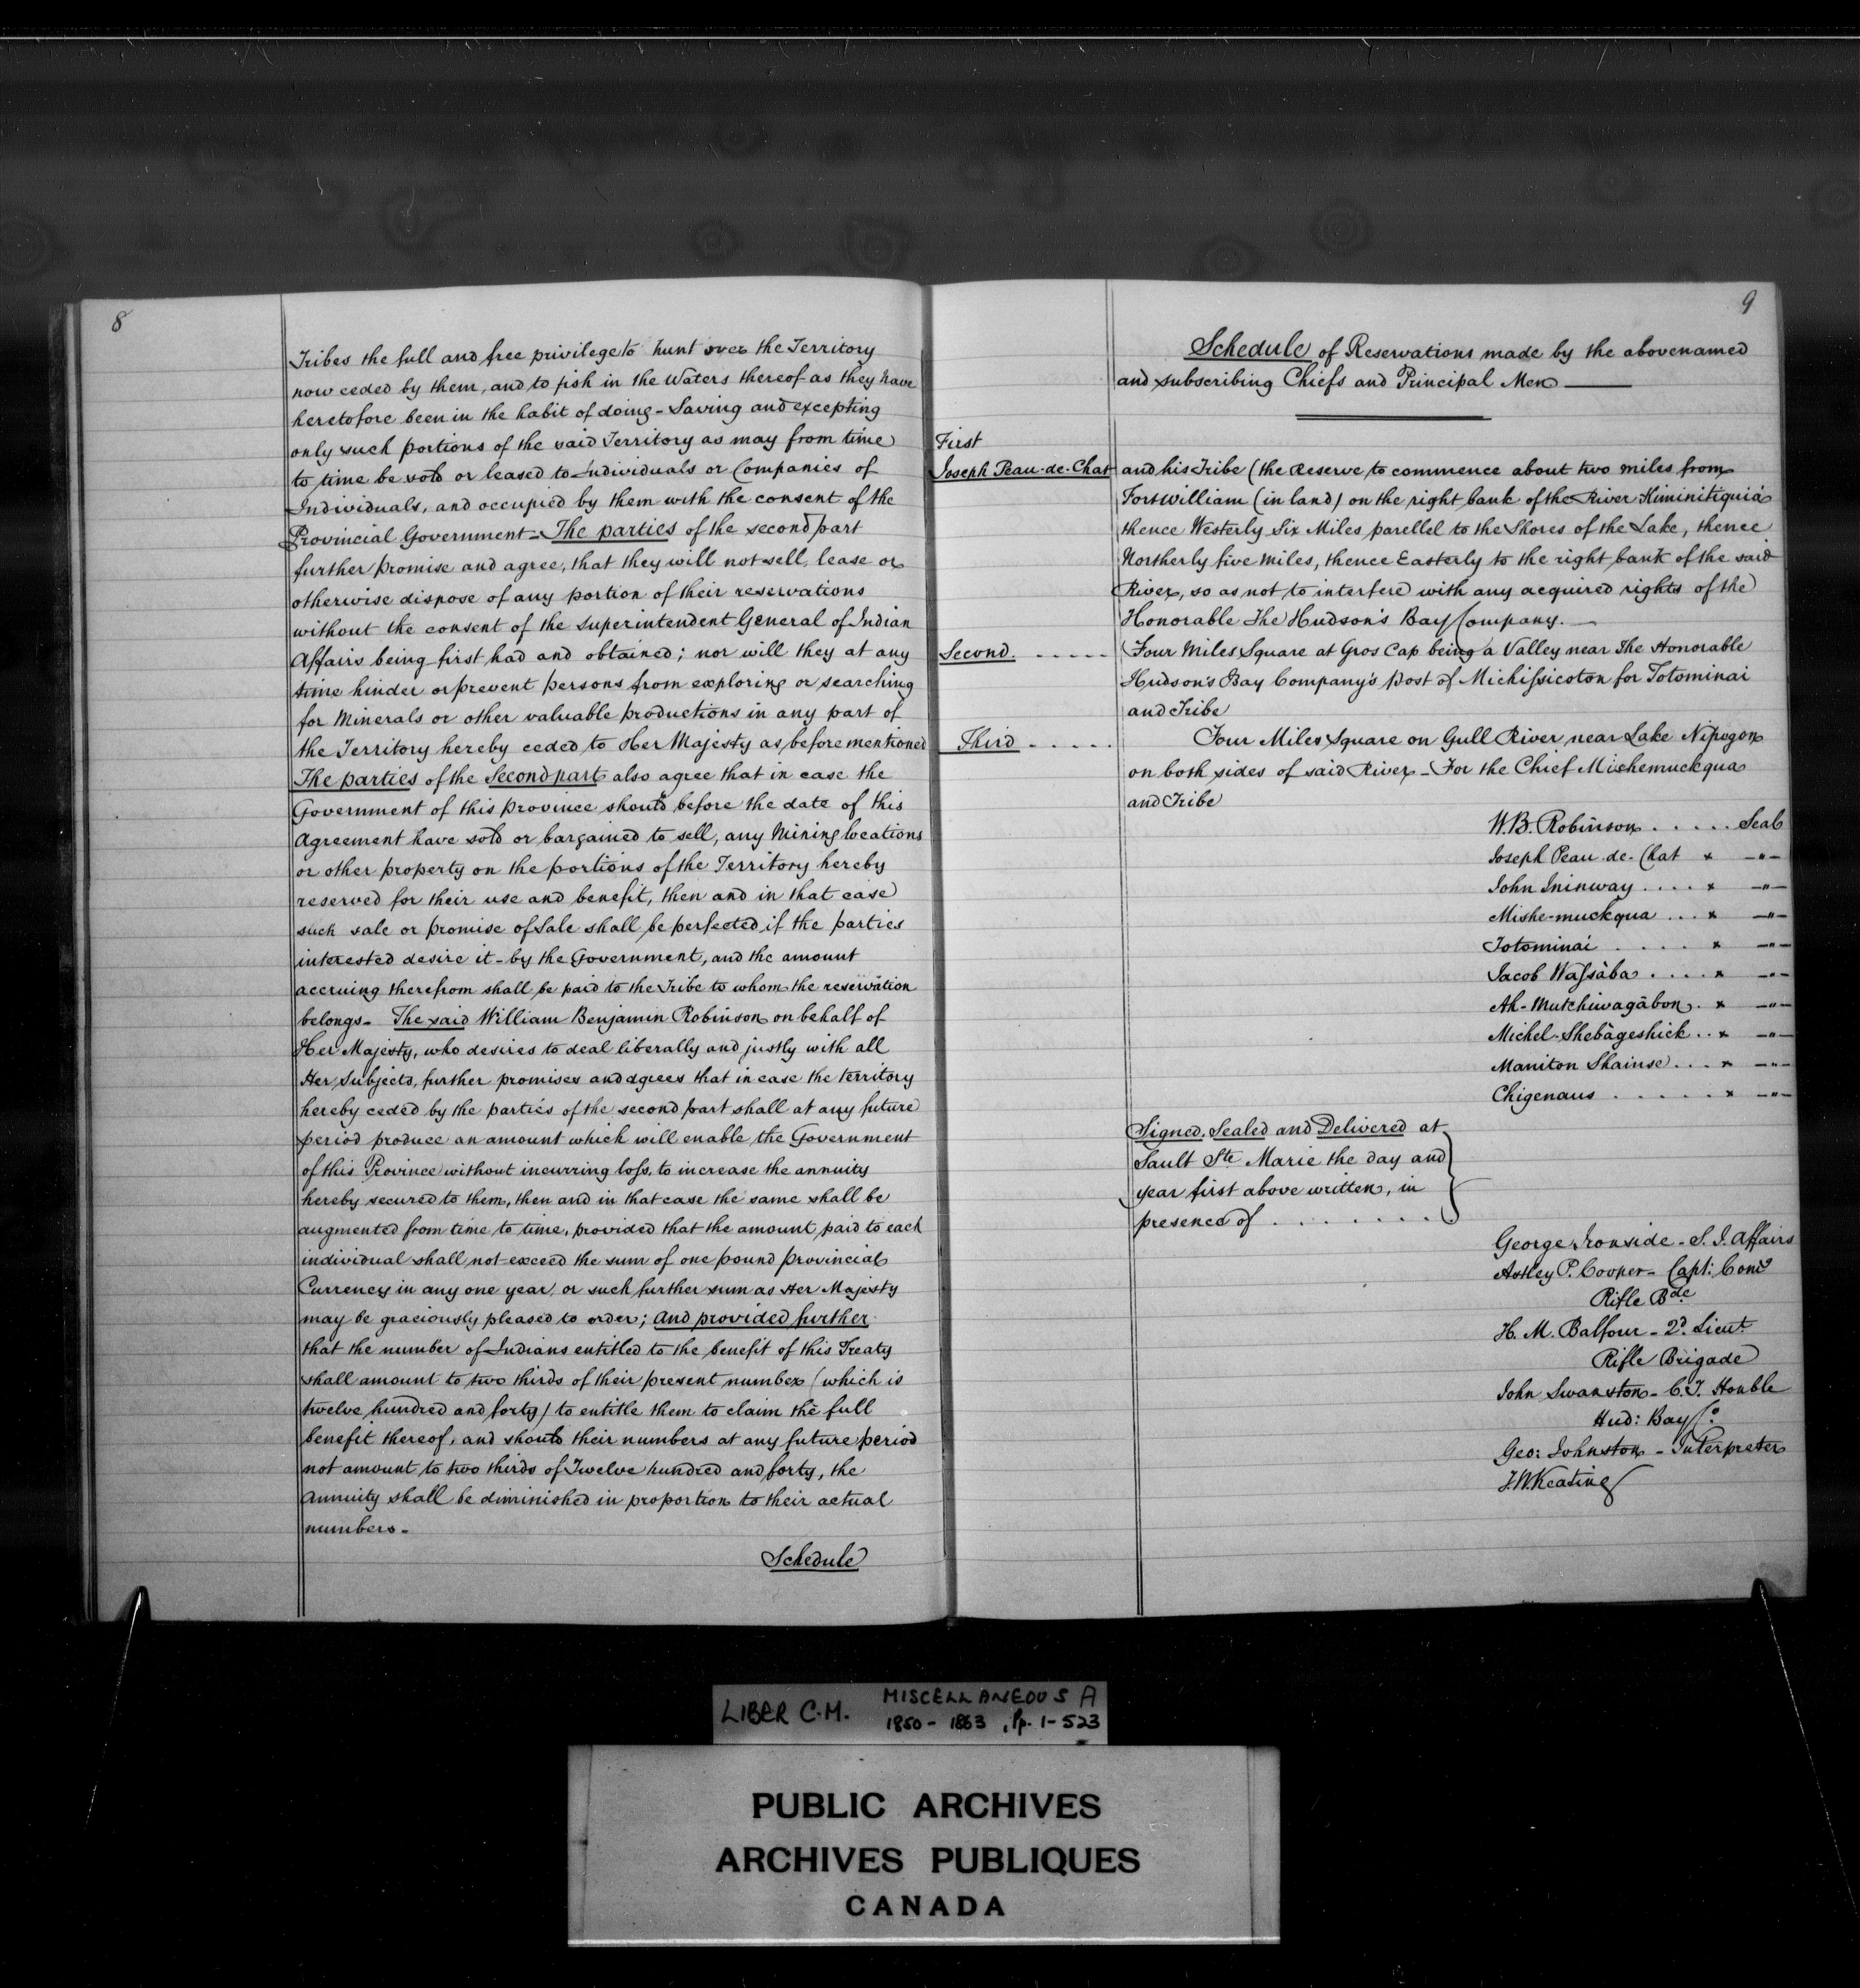 8
Tribes the full and free privilege to hunt over the Territory
now ceded by them, and to fish in the Waters thereof as they have
heretofore been in the habit of doing - Saving and excepting
only such portions of the said Territory as may from time
to time be sold or leased to Individuals or Companies of
Individuals, and occupied by them with the consent of the
Provincial Government - The parties of the second part
further promise and agree, that they will not sell, lease or
otherwise dispose of any portion of their reservations
without the consent of the Superintendent General of Indian
Affairs being first had and obtained; nor will they at any
time hinder or prevent persons from exploring or searching
for Minerals or other valuable productions in any part of
the Territory hereby ceded to Her Majesty as before mentioned
The parties of the Second part also agree that in case the
Government of this Province should before the date of this
Agreement have sold or bargained to sell, any Mining locations
or other property on the portions of the Territory hereby
reserved for their use and benefit, then and in that case
such sale or promise of Sale shall be perfected if the parties
interested desire it - by the Government, and the amount
accruing therefrom shall be paid to the Tribe to whom the reservation
belongs - The said William Benjamin Robinson on behalf of
Her Majesty, who desires to deal liberally and justly with all
Her Subjects, further promises and agrees that in case the territory
hereby ceded by the parties of the second part shall at any future
period produce an amount which will enable the Government
of this Province without incurring loss, to increase the annuity
hereby secured to them, then and in that case the same shall be
augmented from time to time, provided that the amount paid to each
individual shall not exceed the sum of one pound Provincial
Currency in any one year, or such further sum as Her Majesty
may be graciously pleased to order; And provided further
that the number of Indians entitled to the benefit of this Treaty
shall amount to two thirds of their present number (which is
twelve hundred and forty) to entitle them to claim the full
benefit thereof, and should their numbers at any future period
not amount to two thirds of Twelve hundred and forty, the
Annuity shall be diminished in proportion to their actual
numbers -
Schedule
9
Schedule of Reservations made by the abovenamed
and subscribing Chiefs and Principal Men
First
Joseph Peau-de-Chat and his Tribe (the Reserve to commence about two miles from
Fort William (in land) on the right bank of the River Kiminitiquia
thence Westerly Six Miles parellel to the Shores of the Lake, thence
Northerly five miles, thence Easterly to the right bank of the said
River, so as not to interfere with any acquired rights of the
Honorable The Hudson's Bay Company. -
Second. ..... Four Miles Square at Gros Cap being a Valley near The Honorable
Hudson's Bay Company's Post of Michissicoton for Totominai
and Tribe
Third ..... Four Miles Square on Gull River near Lake Nipigon
on both sides of said River - For the Chief Mishemuckqua
and Tribe
W. B. Robinson ..... Seal
Joseph Peau-de-Chat x -"-
John Ininway .... x -"-
Mishe-muckqua ... x -"-
Totominai ..... x -"-
Jacob Wassàba .... x -"-
Ah-Mutchiwagàbon . x -"-
Michel-Shebàgeshick .. x -"-
Maniton Shainse ... x -"-
Chigenaus ...... x -"-
Signed, Sealed and Delivered at
Sault Ste Marie the day and
year first above written, in
presence of ........
George Ironside - S. I. Affairs
Astley P. Cooper - Capt: Comd
Rifle Bde
H. M. Balfour - 2d. Lieut.
Rifle Brigade
John Swanston - C. F. Honble
Hud: Bay Co.
Geo: Johnston - Interpreter
F. W. Keating
LIBER C.M. MISCELLANEOUS A
1850 - 1863, Pp. 1-523
PUBLIC ARCHIVES
ARCHIVES PUBLIQUES
CANADA